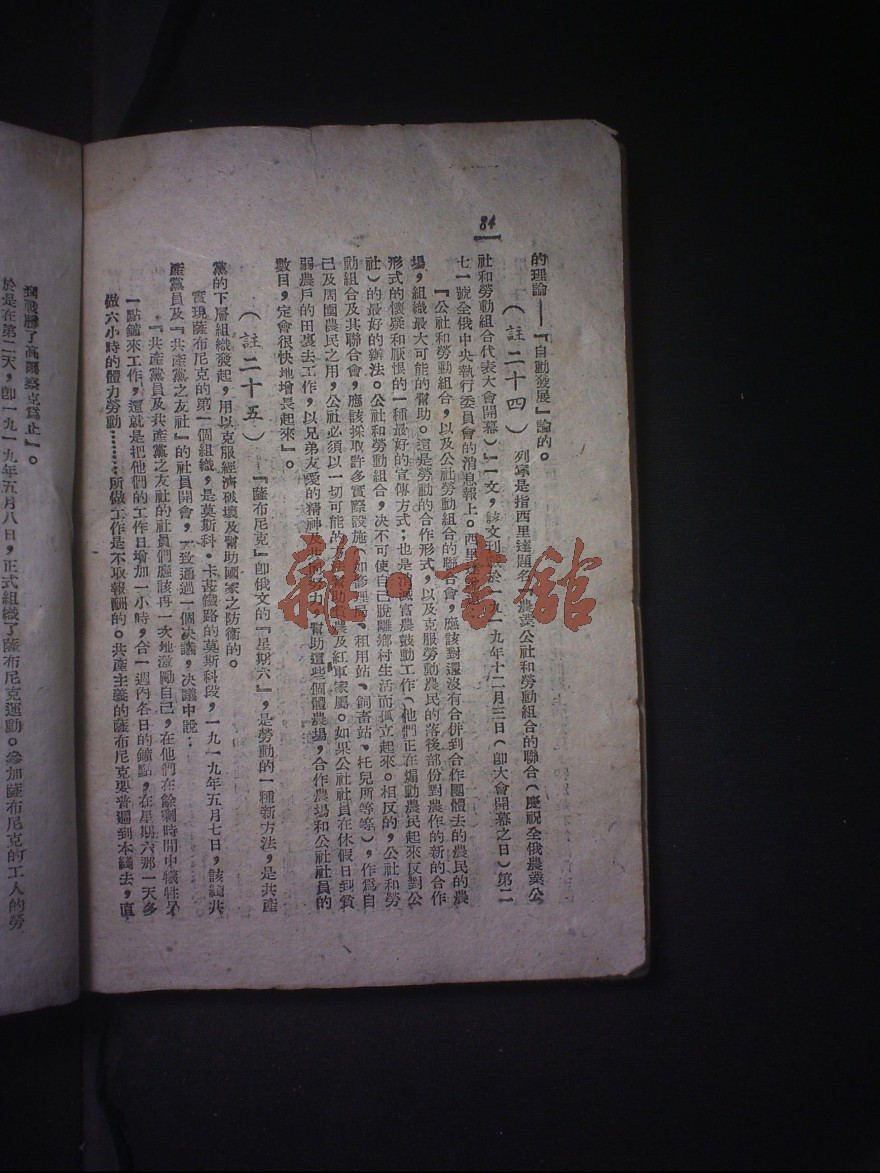 84
的理論——『自動發展』論的。
(註二十四) 列寧是指西里達題名『農業公社和勞動組合的聯合(慶祝全俄農業公
社和勞動組合代表大會開幕)』一文,該文刊於一九一九年十二月三日(卽大會開幕之日)第二
七一號全俄中央執行委員會的消息報上。西里
『公社和勞動組合,以及公社勞動組合的聯合會,應該對還沒有合併到合作團體去的農民的農
場,組織最大可能的幫助。這是勞動的合作形式,以及克服勞動農民的落後部份對農作的新的合作
形式的懷疑和厭恨的一種最好的宣傳方式;也是 富農鼓動工作(他們正在煽動農民起來反對公
社)的最好的辦法。公社和勞動組合,决不可使自己脫離鄉村生活而孤立起來。相反的,公社和勞
動組合及其聯合會,應該採取許多實際設施(如修理局、租用站、飼畜站、托兒所等等),作爲自
己及周圍農民之用,公社必須以一切可能的 助貧農及紅軍家屬。如果公社社員在休假日到貧
弱農戶的田裏去工作,以兄弟友愛的精神及共同努力,幫助這些個體農場,合作農場和公社社員的
數目,定會很快地增長起來』。
(註二十五) 『薩布尼克』卽俄文的『星期六』,是勞動的一種新方法,是共產
黨的下層組織發起,用以克服經濟破壞及幫助國家之防衛的。
實現薩布尼克的第一個組織,是莫斯科·卡薩鐵路的莫斯科段,一九一九年五月七日,該段共
產黨員及『共產黨之友社』的社員開會,一致通過一個决議,决議中說:
『共產黨員及共產黨之友社的社員們應該再一次地激勵自己,在他們在餘剩時間中犧牲
一點鐘來工作,這就是把他們的工作日增加一小時,合一週內各日的鐘點,在星期六那一天多
做六小時的體力勞動………所做工作是不取報酬的。共產主義的薩布尼克要普遍到本綫去,直
到戰勝了高爾察克爲止』。
於是在第二天,卽一九一九年五月八日,正式組織了薩布尼克運動。參加薩布尼克的工人的勞
雜·書館